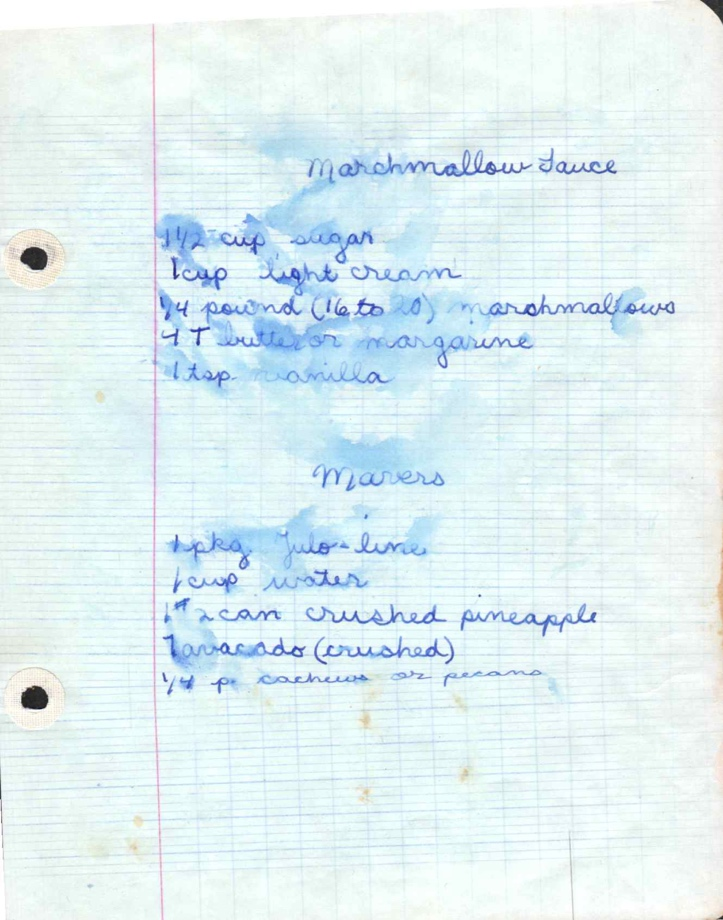 Marchmallow Sauce
1 1/2 cup sugar
1 cup light cream
1/4 pound (16 to 20) marchmallows
4 T butter or margarine
1 tsp. vanilla
Marers
1 pkg. Julo-line
1 cup water
1 #2 can crushed pineapple
1 avacado (crushed)
1/4 p. cachews or pecans